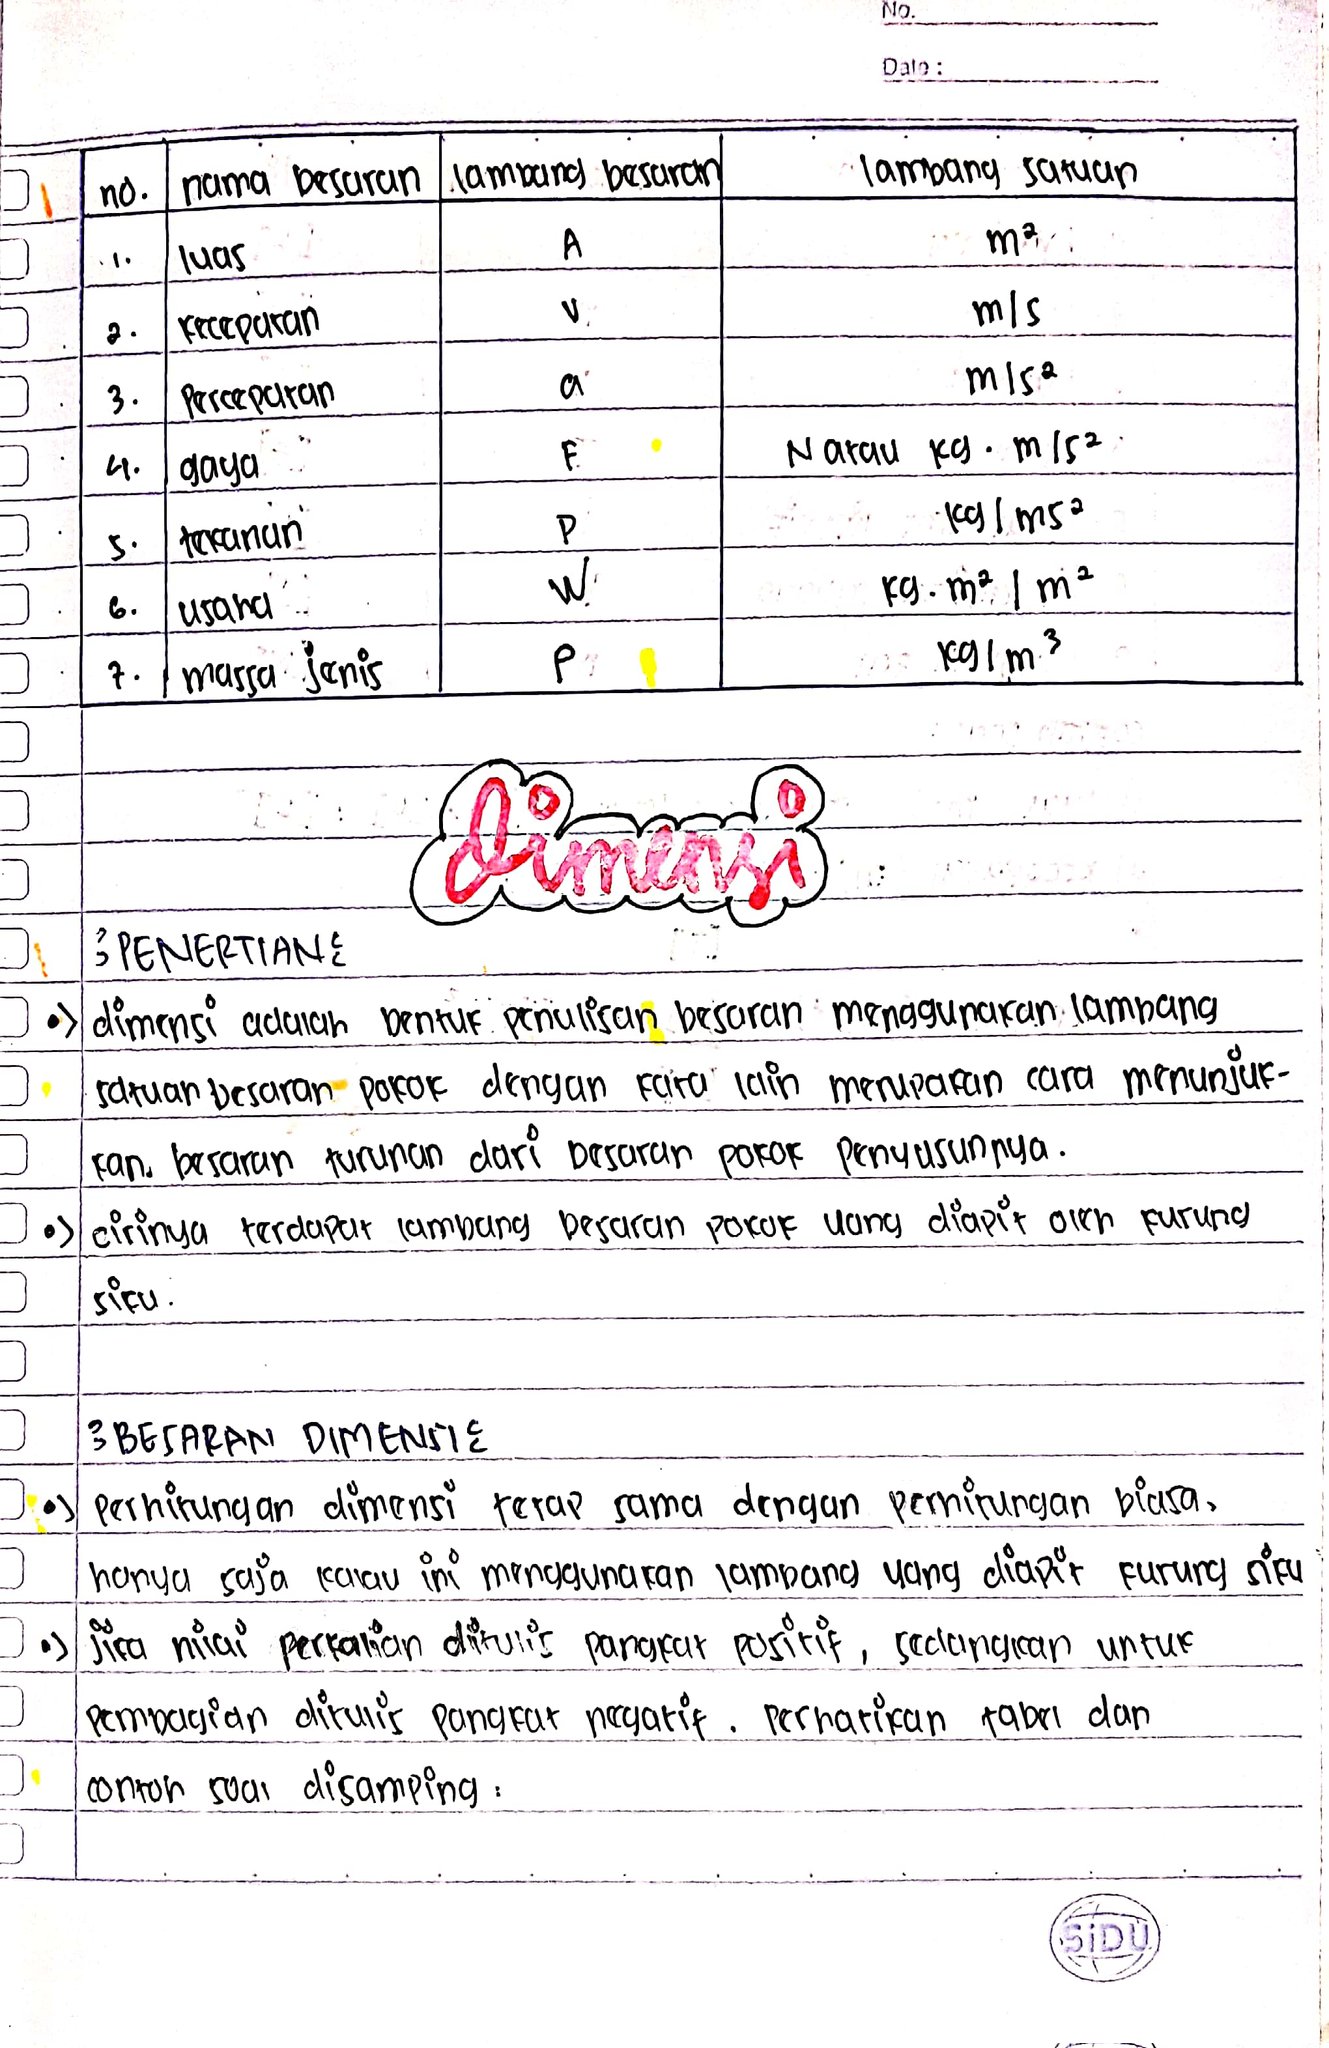 No.
Date :
no. nama besaran lambang besaran lambang satuan
1. luas A m²
2. kecepatan v m/s
3. Percepatan a m/s²
4. gaya F N atau kg . m/s²
5. tekanan P kg/ms²
6. usaha W kg . m² / m²
7. massa jenis ρ kg/m³
dimensi
PENERTIAN
dimensi adalah bentuk penulisan besaran menggunakan lambang
satuan besaran pokok dengan kata lain merupakan cara menunjuk-
kan besaran turunan dari besaran pokok penyusunnya.
cirinya terdapat lambang besaran pokok yang diapit oleh kurung
siku.
BESARAN DIMENSI
perhitungan dimensi tetap sama dengan perhitungan biasa,
hanya saja kalau ini menggunakan lambang yang diapit kurung siku
jika nilai perkalian ditulis pangkat positif, sedangkan untuk
pembagian ditulis pangkat negatif. Perhatikan tabel dan
contoh soal disamping :
SiDU